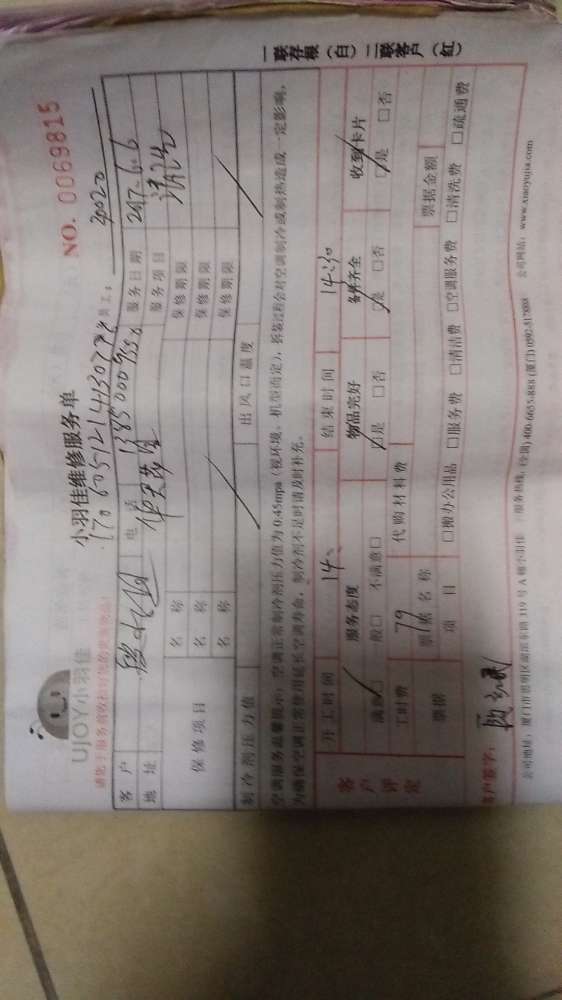 UJOY小羽佳
小羽佳维修服务单
NO. 0069815
员工: 40020
客户 电话 服务日期 2017.6.6
地址 服务项目 清洗
保修项目 名称 保修期限
名称 保修期限
名称 保修期限
制冷剂压力值 出风口温度
空调服务温馨提示:空调正常制冷剂压力值为0.45mpa(视环境、机型而定),拆装过程会对空调制冷或制热造成一定影响,
为确保空调正常使用延长空调寿命,制冷剂不足时请及时补充。
客户评定
开工时间 结束时间 14:30
服务态度 物品完好 备件齐全 收到卡片
满意□ 一般□ 不满意□ □是 □否 □是 □否 □是 □否
工时费 79 代购材料费
票据 票据名称 票据金额
项目 □搬办公用品 □服务费 □清洁费 □空调服务费 □清洗费 □疏通费
客户签字:
公司地址:厦门市思明区湖滨东路119号A幢小羽佳 服务热线:(全国)400-6655-888 (厦门)0592-5178888 公司网站:www.xiaoyujia.com
一联存根(白)二联客户(红)